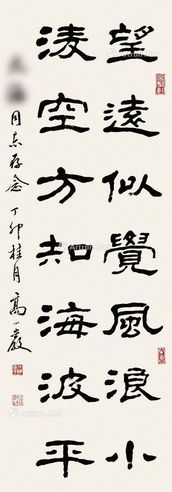 望遠似覺風浪小
凌空方知海波平
同志存念 丁卯桂月 高嚴